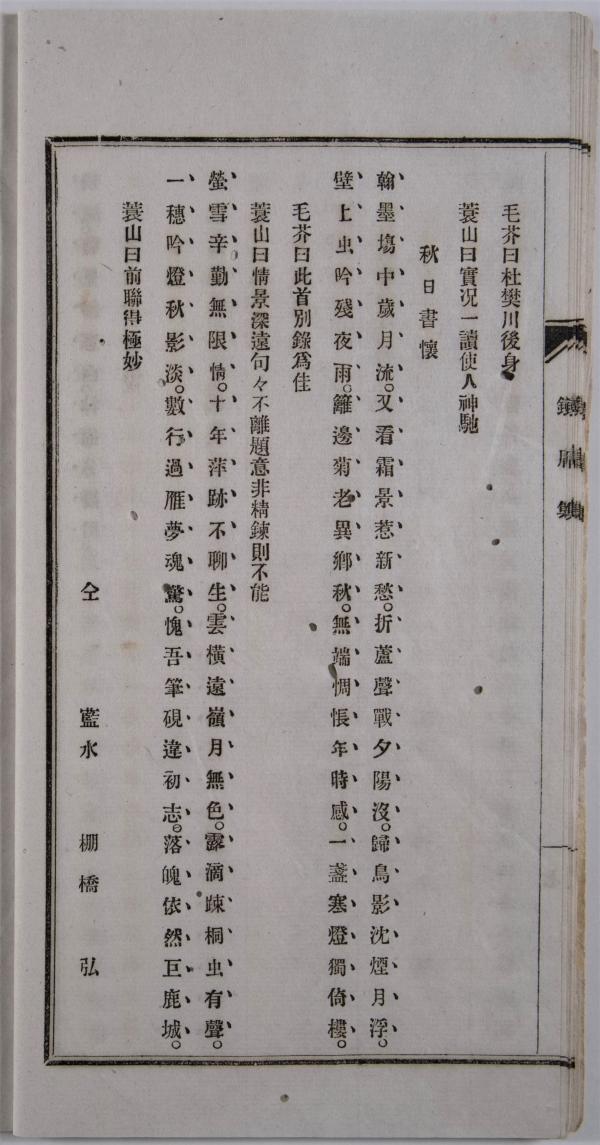 毛芥曰杜樊川後身
蓑山曰實況一讀使人神馳
秋日書懷
翰墨塲中歲月流。又看霜景惹新愁。折蘆聲戰夕陽沒。歸鳥影沈煙月浮。
壁上虫吟殘夜雨。籬邊菊老異鄉秋。無端惆悵年時感。一盞寒燈獨倚樓。
毛芥曰此首別錄爲佳
蓑山曰情景深遠句々不離題意非精鍊則不能
螢雪辛勤無限情。十年萍跡不聊生。雲橫遠嶺月無色。露滴踈桐虫有聲。
一穗吟燈秋影淡。數行過雁夢魂驚。愧吾筆硯違初志。落魄依然巨鹿城。
蓑山曰前聯得極妙
仝　藍水　棚橋　弘